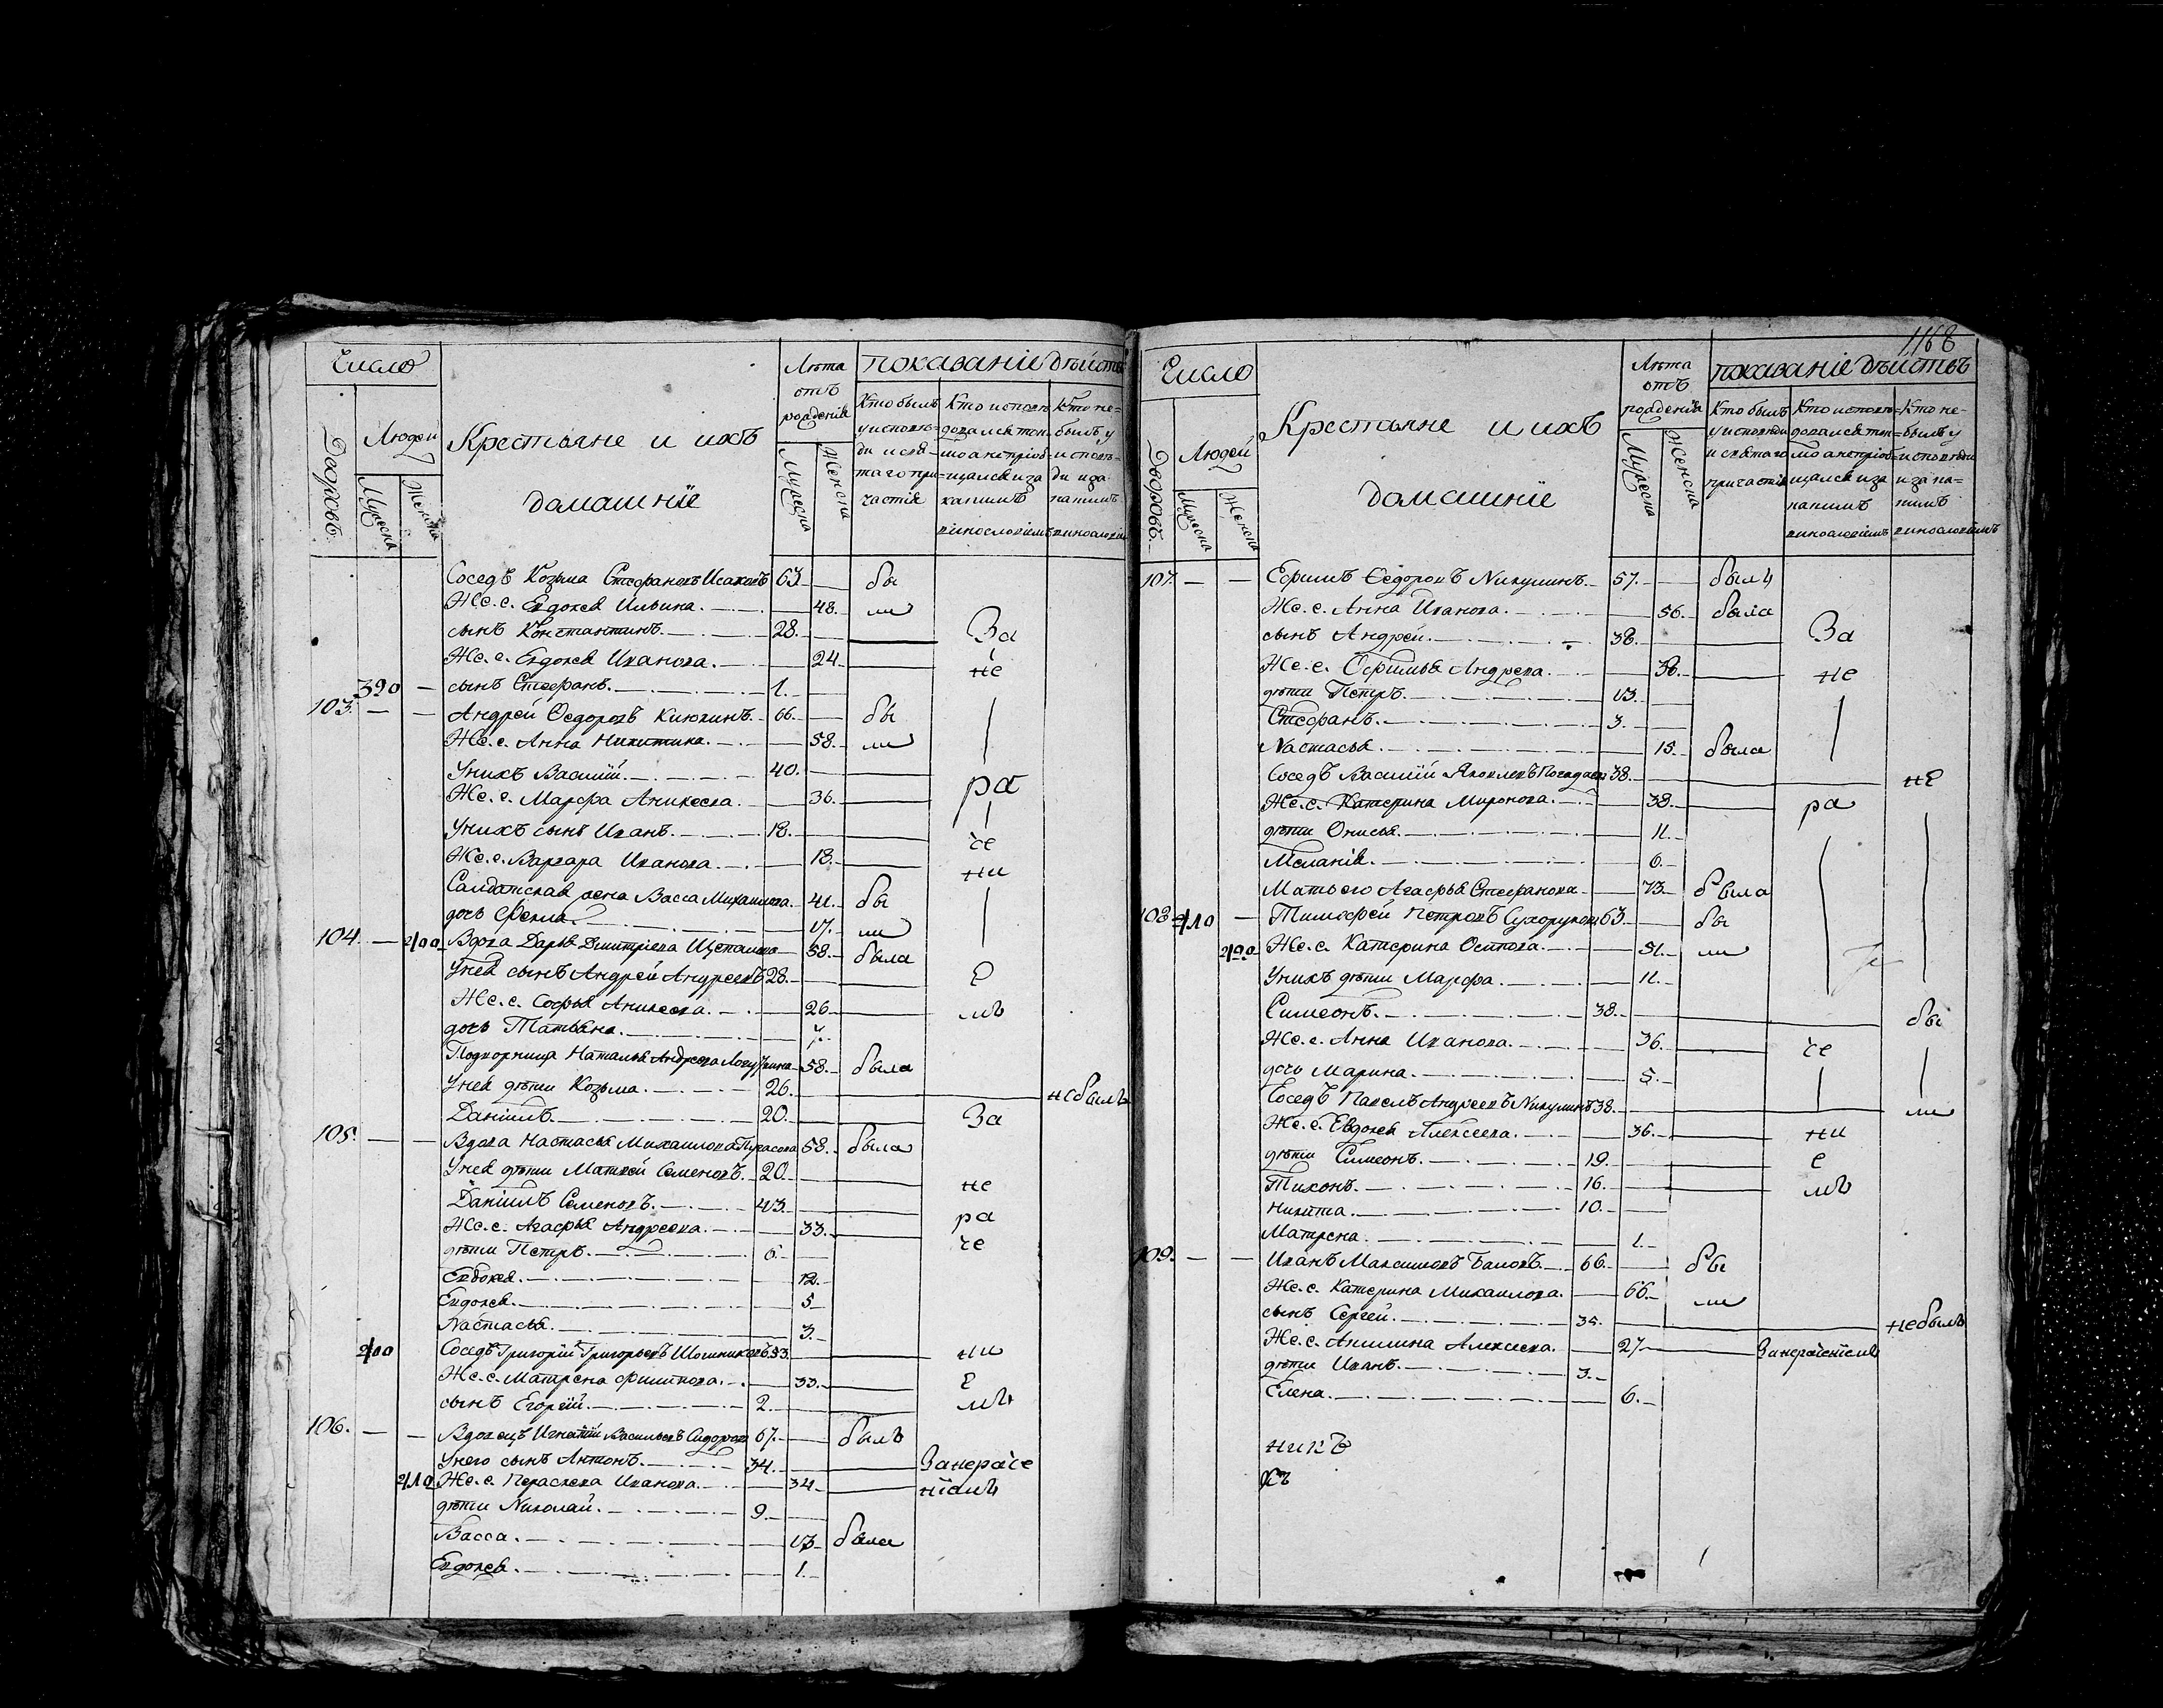 Число
Дворовъ
Людей
Мужеска
Женска
Крестьяне и ихъ
домашнїе
Лѣта
отъ
рожденія
Мужеска
Женска
показаніе дѣйств
Кто былъ
у исповѣ=
ди и свя=
таго при=
частія
Кто исповѣ
довался ток
мо а не пріоб
щался и за
какимъ
винословіемъ
Кто не=
былъ у
исповѣ=
ди и за
какимъ
винословіе
Соседъ Козьма Стефановъ Исаковъ 63. бы
Же. е. Евдокея Ильина. 48. ли
сынъ Константинъ. 28. За
Же. е. Евдокея Иванова. 24. не
390 сынъ Стефанъ. 1.
103. Андрей Ѳедоровъ Кнюхинъ. 66. бы
Же. е. Анна Никитина. 58. ли
Унихъ Василїй. 40.
Же. е. Марфа Аникеева. 36. ра
Унихъ сынъ Иванъ. 18. че
Же. е. Варвара Иванова. 18. ни
Салдатская жена Васса Михайлова. 41. бы
дочь Фекла. 17. ли
104. 400 Вдова Дарья Дмитріева 58. была
Унея сынъ Андрей Андреевъ 28. е
Же. е. Софья Аникеева. 26. мъ
дочь Татьяна.
Подворница Наталья Андреева 58. была
Унея дѣти Козьма. 26. небылъ
Данїилъ. 20. За
105. Вдова Настасья Михайлова 58. была
Унея дѣти Матвей Семеновъ. 20. не
Данїилъ Семеновъ. 43. ра
Же. е. Агафья Андреева. 33. че
дѣти Петръ. 6.
Евдокея. 12.
Евдокея. 5
Настасья. 3.
400 Соседъ Григорїй Григорьевъ 33. ни
Же. е. Матрена Филипова. 33. е
сынъ Егорїй. 2. мъ
106. Вдовецъ Игнатїй Васильевъ Сидоровъ 67. былъ
Унего сынъ Антонъ. 34. Занераче
410 Же. е. Параскева Иванова. 34. нїемъ
дѣти Николай. 9.
Васса. 13 была
Евдокея. 1.
1168
Число
Дворовъ.
Людей
Мужеска
Женска
Крестьяне и ихъ
домашнїе
Лѣта
отъ
рожденія
Мужеска
Женска
показаніе дѣйствъ
Кто былъ
у исповѣди
и святаго
причастія
Кто исповѣ=
довался ток=
мо а не пріоб=
щался и за
какимъ
винословіемъ
Кто не=
былъ у
исповѣди
и за ка=
кимъ
винословіемъ
107. Ефимъ Ѳедоровъ Никулинъ. 57. былъ
Же. е. Анна Иванова. 56. была
сынъ Андрей. 38. За
Же. е. Ефимья Андреева. 38. не
дѣти Петръ. 13.
Стефанъ. 3.
Настасья. 15. была
Соседъ Василїй Яковлевъ 38. не
Же. е. Катерина Миронова. 38. ра
дѣти Онисья. 11.
Меланія. 6.
Мать его Агафья Стефанова 73. была
108 410 Тимофей Петровъ Сухоруковъ 63. бы
400 Же. е. Катерина Осипова. 51. ли
Унихъ дѣти Марфа. 11.
Симеонъ. 38. бы
Же. е. Анна Иванова. 36. че
дочь Марина. 5.
Соседъ Павелъ Андреевъ Никулинъ 38. ли
Же. е. Евдокея Алексеева. 36. ни
дѣти Симеонъ. 19. е
Тихонъ. 16. мъ
Никита. 10.
Матрена. 1.
109. Иванъ Максимовъ Баловъ. 66. бы
Же. е. Катерина Михайлова. 66. ли
сынъ Сергей. 35. небылъ
Же. е. Акилина Алексеева. 27 Занерачїемъ
дѣти Иванъ. 3.
Елена. 6.
никъ